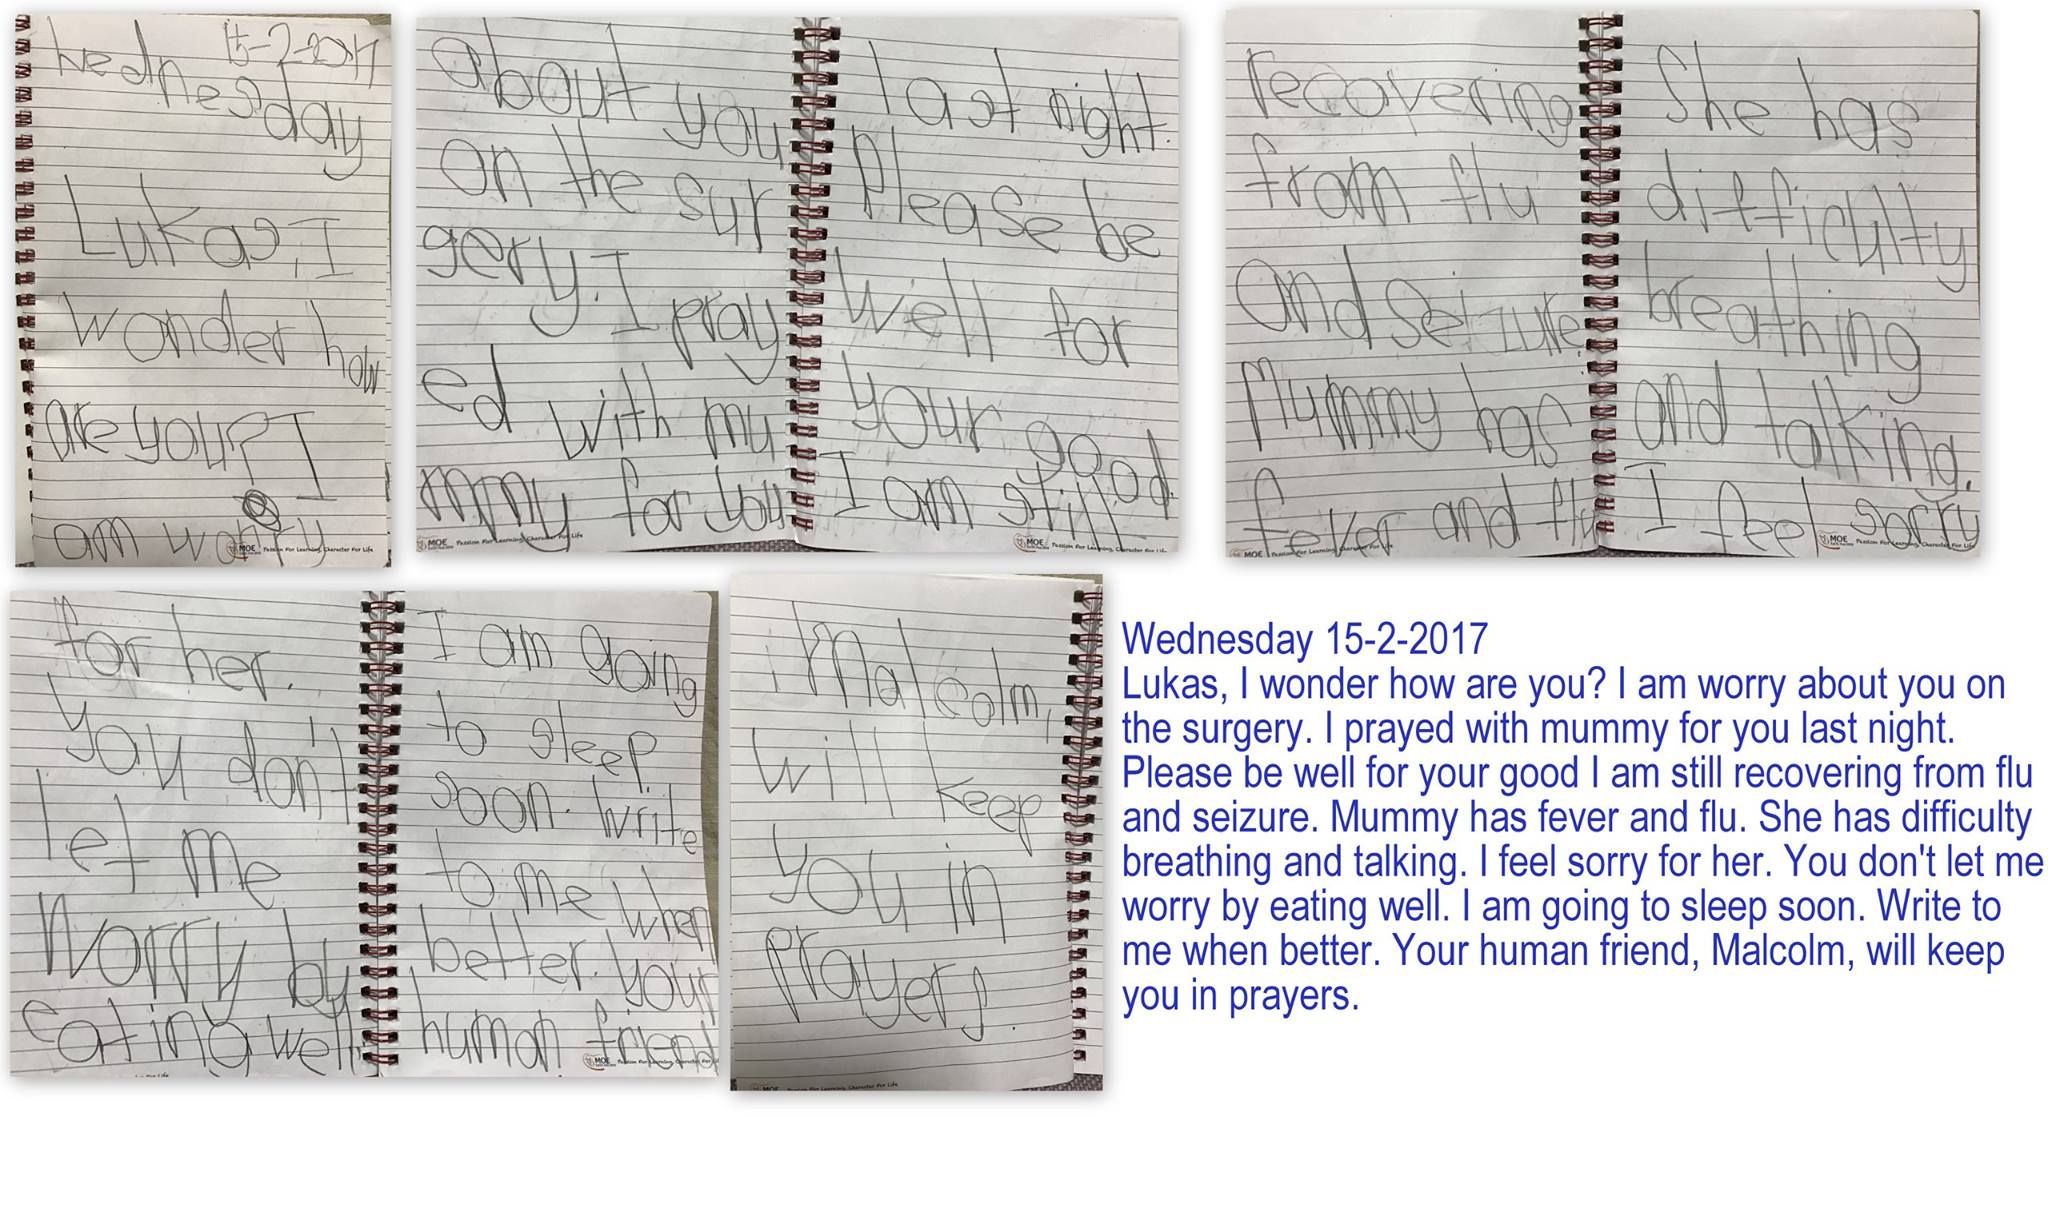 15-2-2017
Wednesday
Lukas, I
wonder how
are you? I
am worry
MOE Passion For Learning, Character For Life
about you
on the sur
gery. I pray
ed with my
mmy for you
MOE Passion For Learning, Character For Life
last night.
Please be
well for
your good.
I am still
MOE Passion For Learning, Character For Life
recovering
from flu
and seizure.
Mummy has
fever and flu
MOE Passion For Learning, Character For Life
She has
difficulty
breathing
and talking.
I feel sorry
MOE Passion For Learning, Character For Life
for her.
You don't
let me
worry by
eating well.
For Life
I am going
to sleep
soon. Write
to me when
better. Your
human friend
MOE Passion For Learning, Character For Life
Malcolm,
will keep
you in
prayers.
MOE Passion For Learning, Character For Life
Wednesday 15-2-2017
Lukas, I wonder how are you? I am worry about you on
the surgery. I prayed with mummy for you last night.
Please be well for your good I am still recovering from flu
and seizure. Mummy has fever and flu. She has difficulty
breathing and talking. I feel sorry for her. You don't let me
worry by eating well. I am going to sleep soon. Write to
me when better. Your human friend, Malcolm, will keep
you in prayers.